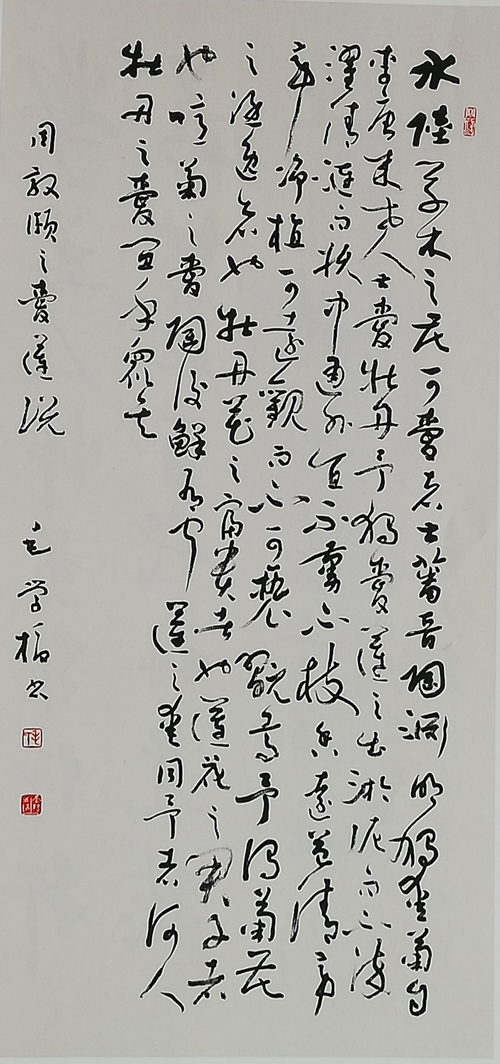 水陸草木之花可愛者甚蕃晉陶淵明獨愛菊自
李唐来世人甚愛牡丹予獨愛蓮之出淤泥而不染
濯清漣而妖中通外直不蔓不枝香遠益清亭
亭净植可遠觀而不可褻翫焉予謂菊花
之隱逸者也牡丹花之富貴者也蓮花之君子者
也噫菊之愛陶後鮮有聞蓮之愛同予者何人
牡丹之愛宜乎眾矣
周敦頤之愛蓮説
毛学书